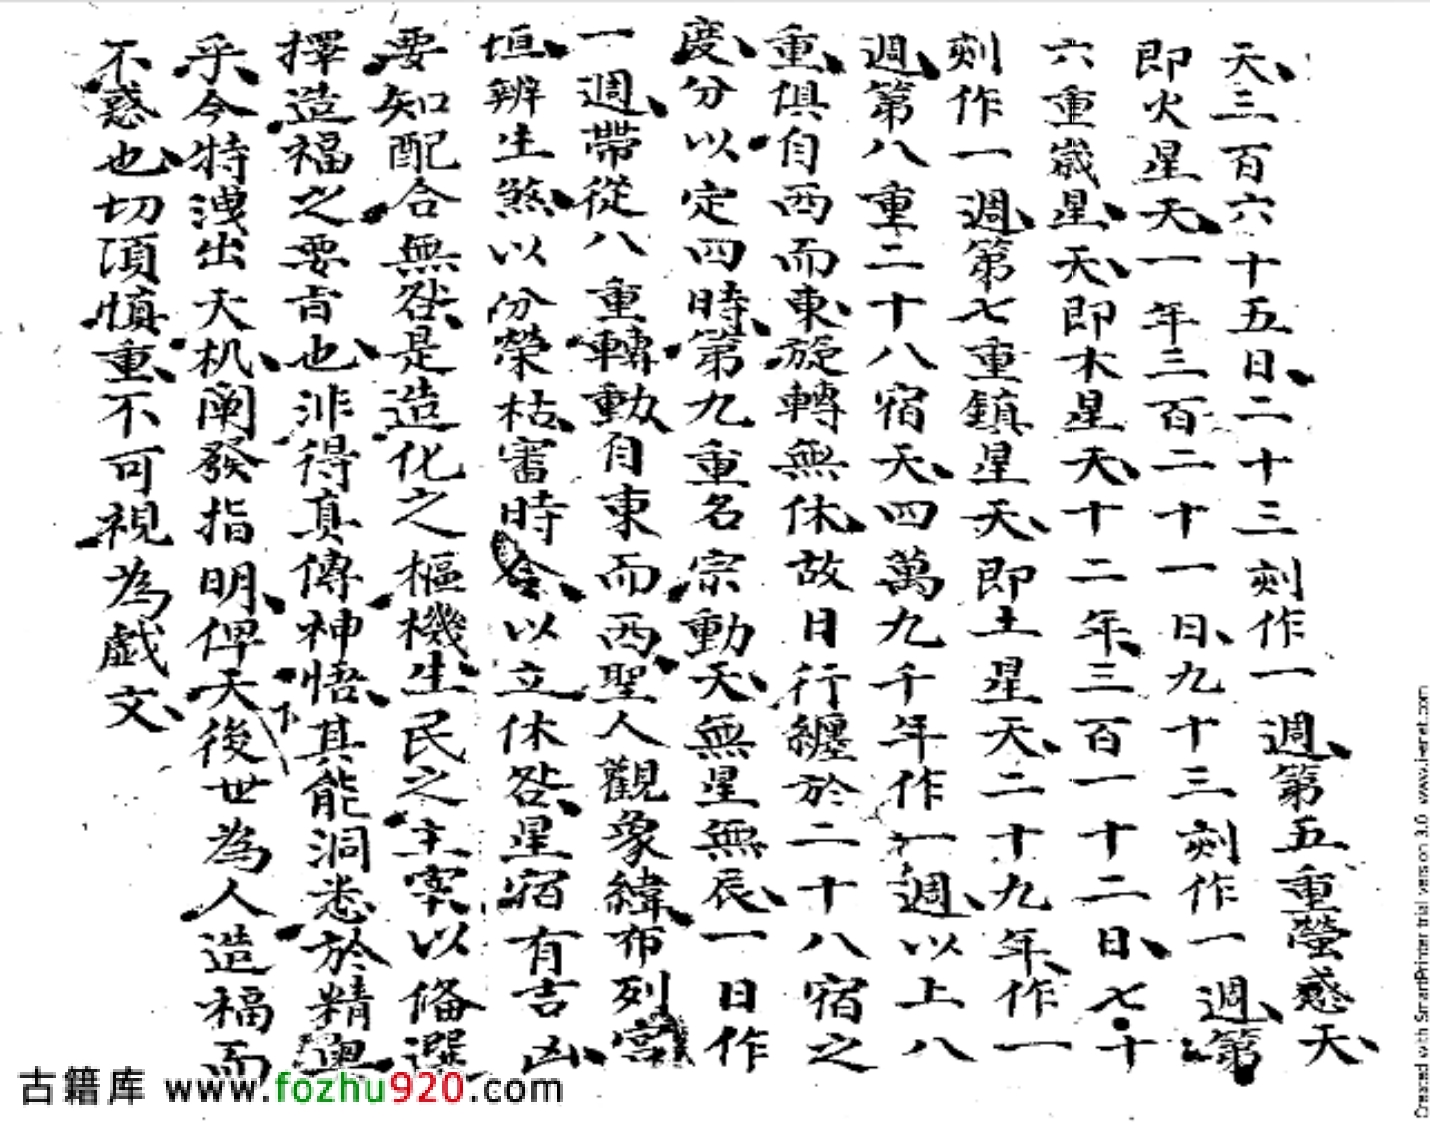 天三百六十五日二十三刻作一週第五重螢惑天
即火星天一年三百二十一日九十三刻作一週第
六重歲星天即木星天十二年三百一十二日七十
刻作一週第七重鎮星天即土星天二十九年作一
週第八重二十八宿天四萬九千年作一週以上八
重俱自西而東旋轉無休故日行纏於二十八宿之
度分以定四時第九重名宗動天無星無辰一日作
一週帶從八重轉動自東而西聖人觀象緯布列宮
垣辨生煞以分榮枯審時令以立休咎星宿有吉凶
要知配合無咎是造化之樞機生民之主宰以俻選
擇造福之要旨也非得真傳神悟其能洞悉於精奧
乎今特洩出天机闡發指明俾天下後世為人造福而
不惑也切須慎重不可視為戯文
古籍库 www.fozhu920.com
Created with SmartPrinter trial version 3.0 www.i-enet.com